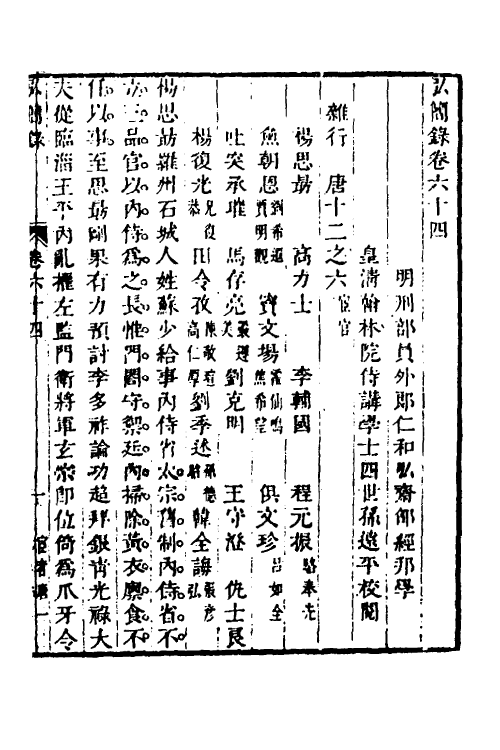 弘簡錄卷六十四
明刑部員外郎仁和弘齋邵經邦學
皇清翰林院侍講學士四世孫遠平校閱
雜行　唐十二之六　宦官
楊思勗　高力士　李輔國　程元振　駱奉先
魚朝恩　劉希暹　賈明觀　竇文場　霍仙鳴　焦希望　俱文珍　呂如全
吐突承璀　馬存亮　嚴遵美　劉克明　王守澄　仇士良
楊復光　兄復恭　田令孜　陳敬瑄　高仁厚　劉季述　韓全誨　張彥弘
楊思勗羅州石城人姓蘇少給事內侍省太宗舊制內侍省不
立三品官以內侍爲之長惟門閤守禦廷內掃除黃衣廩食不
任以事至思勗剛果有力預討李多祚論功超拜銀青光祿大
夫從臨淄王平內亂擢左監門衛將軍玄宗即位倚爲爪牙令
弘簡錄　卷六十四　一